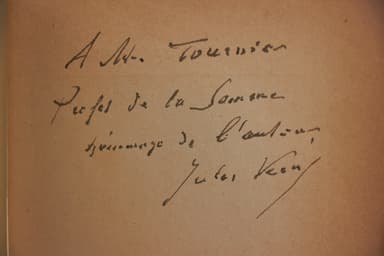 A Mr. Tournier
Préfet de la Somme
hommage de l'auteur
Jules Verne